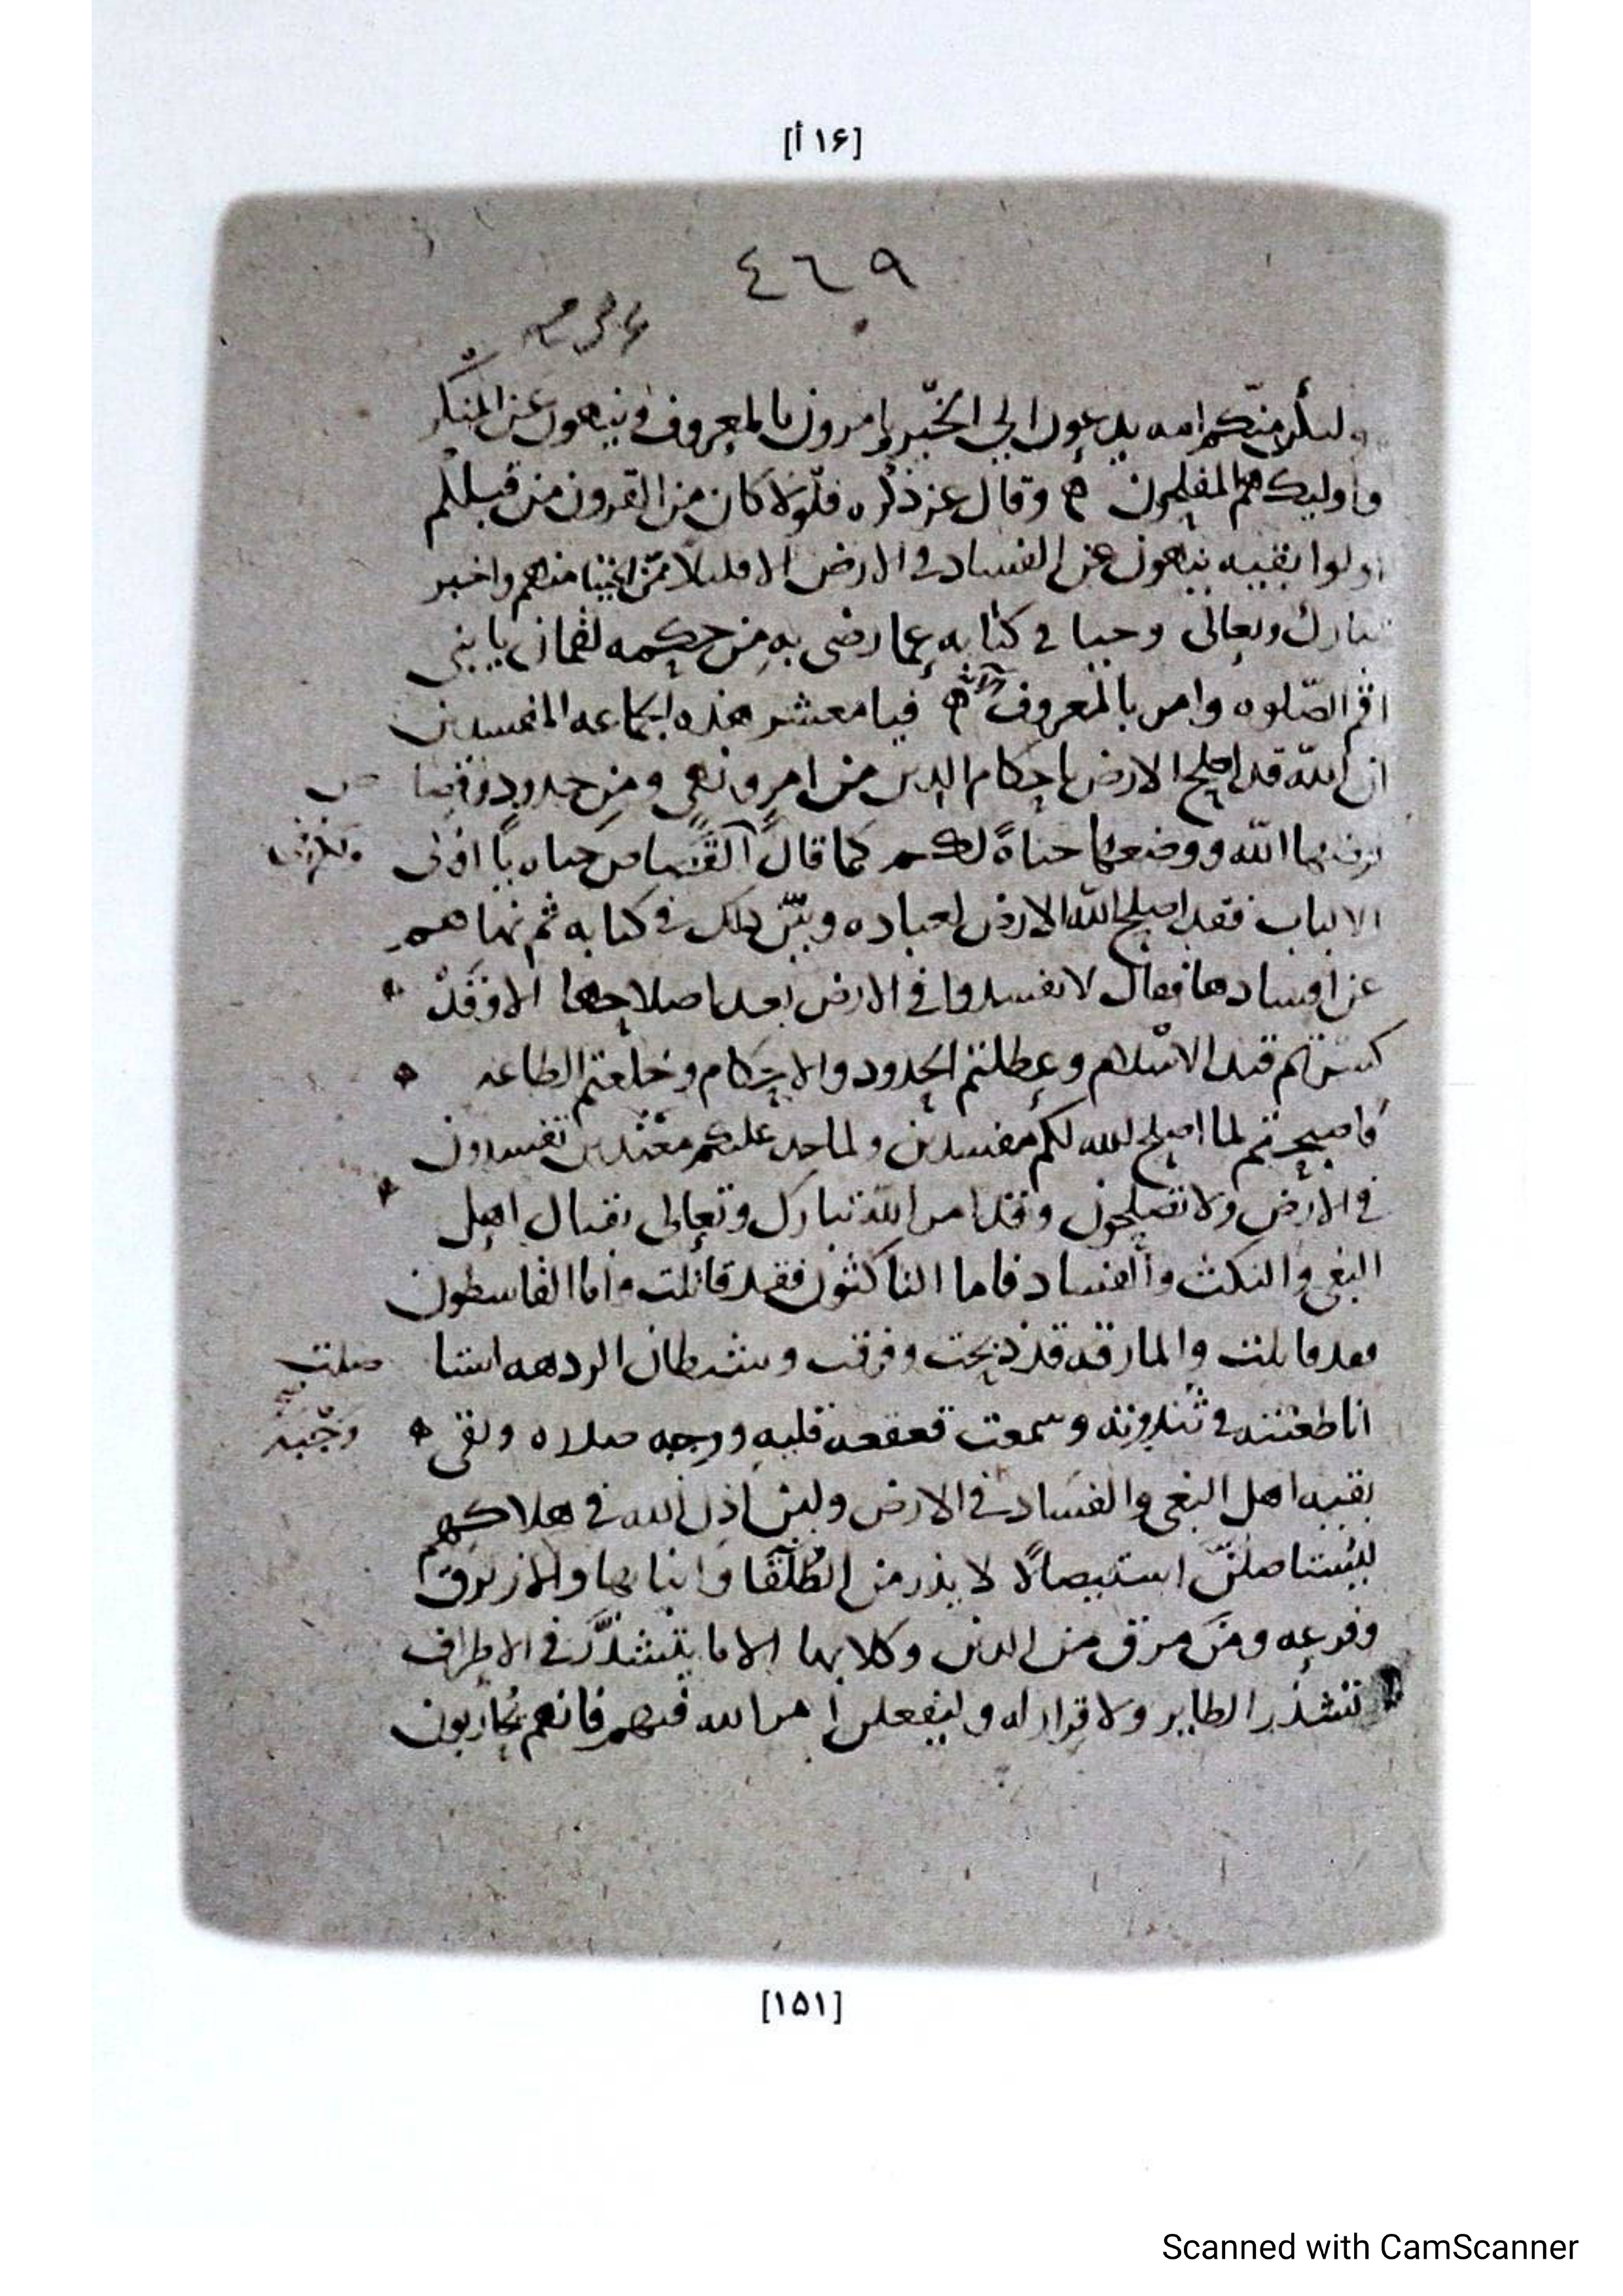 [۱۶ أ]
٤٦٩
ولتكن منكم امه يدعون الى الخير يامرون بالمعروف وينهون عن المنكر
واوليك هم المفلحون ه وقال عز ذكره فلولا كان من القرون من قبلكم
اولوا بقيه ينهون عن الفساد في الارض الا قليلا ممن انجينا منهم واخبر
تبارك وتعالى وحيا في كتابه عما رضي به من حكمه لقمان يا بني
اقم الصلوه وامر بالمعروف ه فيا معشر هذه الجماعه المفسدين
ان الله قد اصلح الارض باحكام الدين من امر ونهي ومن حدود
بها الله ووضعها حياة لكم كما قال القصاص حياه يا اولى
الالباب فقد اصلح الله الارض لعباده وبين ذلك في كتابه ثم نهاهم
عن افسادها فقال لا تفسدوا في الارض بعد اصلاحها الا وقد
كسرتم قيد الاسلام وعطلتم الحدود والاحكام وخلعتم الطاعه
فاصبحتم لما اصلح الله لكم مفسدين ولما حد عليكم معتدين تفسدون
في الارض ولا تصلحون وقد امر الله تبارك وتعالى بقتال اهل
البغي والنكث والفساد فاما الناكثون فقد قاتلت واما القاسطون
فقد قاتلت والمارقه قد ذبحت وفرقت وشيطان الردهه
انا طعنته في ثندوته وسمعت قعقعه قلبه ورجه صدره وبقى
وجبه
بقيه اهل البغي والفساد في الارض ولئن اذن الله في هلاكهم
ليستاصلن استيصالا لا يذر من الطلقا وابنايها والازرق
وفرعه ومن مرق من الدين وكلابها الا ما يتشذر في الاطراف
تشذر الطاير ولا قرار له وليفعلن امر الله فيهم فانهم يحاربون
[۱۵۱]
Scanned with CamScanner